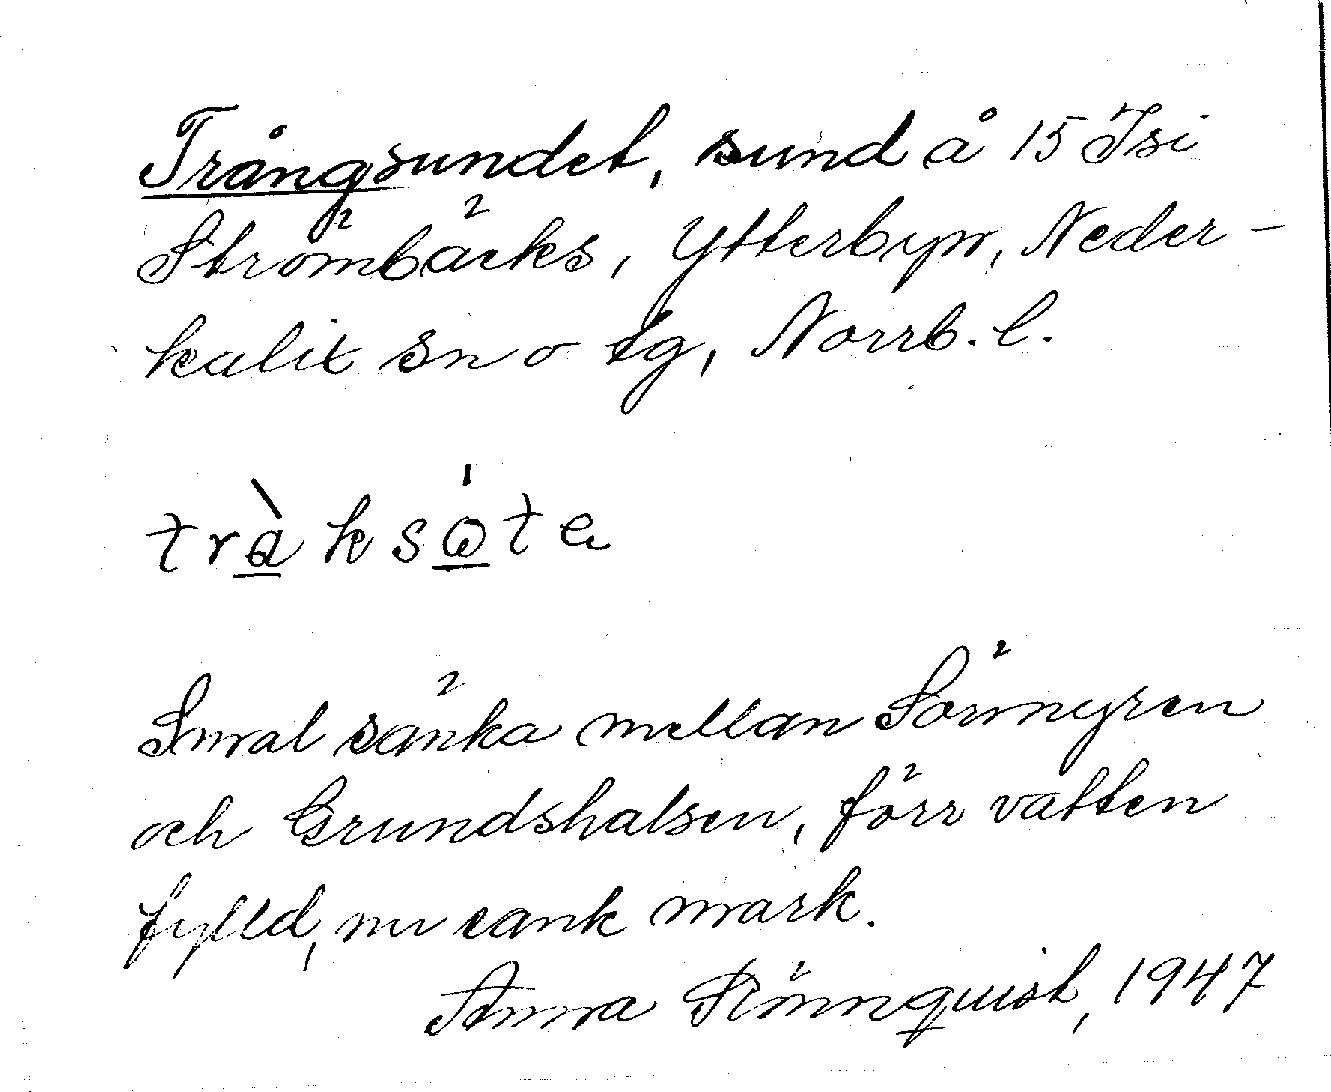 Trångsundet, sund å 15 Isi
Strömbäcks, Ytterbyn, Neder-
kalix sn o tg, Norrb. l.
tràksóte
Smal sänka mellan Sörmyren
och Grundshalsen, förr vatten
fylld, nu sank mark.
Anna Rönnquist, 1947